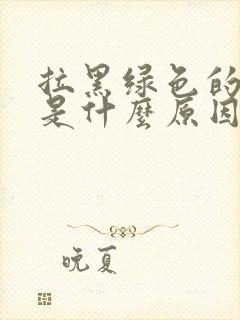 拉黑绿色的
是什麼原因
晚夏